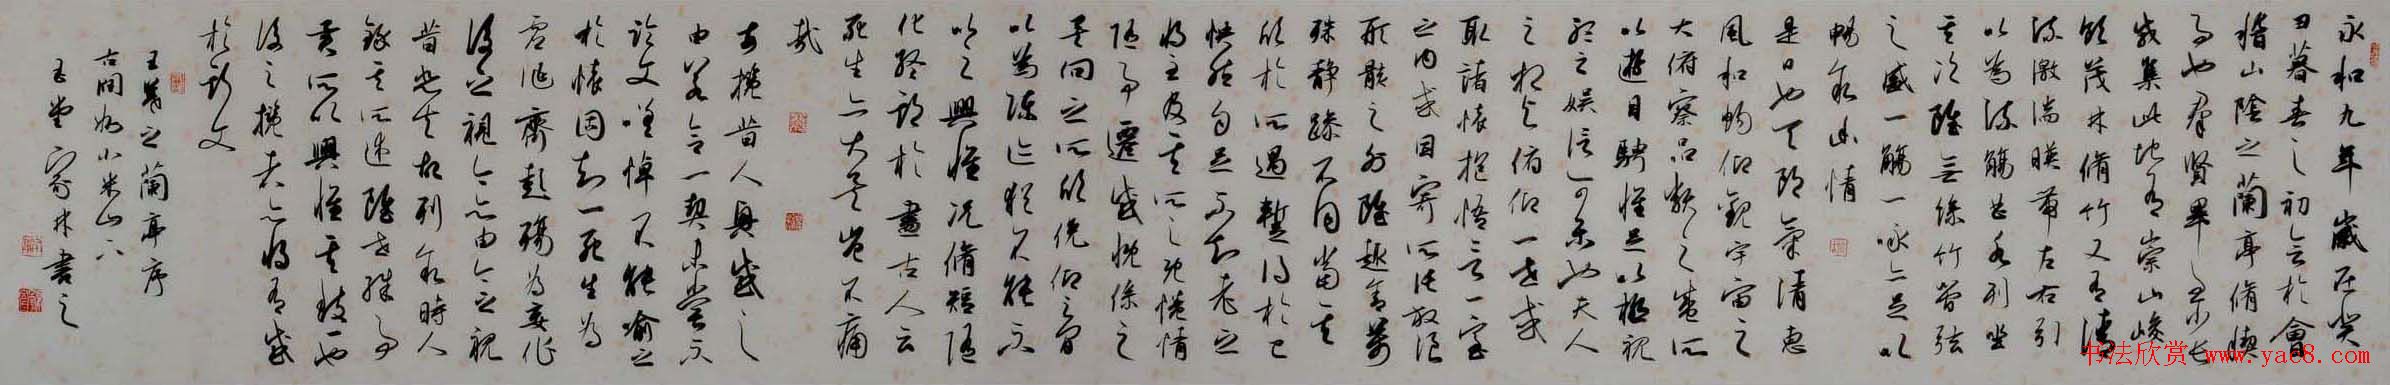 永和九年歲在癸
丑暮春之初會於會
稽山陰之蘭亭脩禊
事也羣賢畢至少長
咸集此地有崇山峻
領茂林脩竹又有清
流激湍暎帶左右引
以為流觴曲水列坐
其次雖無絲竹管弦
之盛一觴一詠亦足以
暢敘幽情
是日也天朗氣清惠
風和暢仰觀宇宙之
大俯察品類之盛所
以遊目騁懷足以極視
聽之娛信可樂也夫人
之相與俯仰一世或
取諸懷抱悟言一室
之內或因寄所託放浪
形骸之外雖趣舍萬
殊靜躁不同當其
欣於所遇暫得於己
快然自足不知老之
將至及其所之既惓情
隨事遷感慨係之
矣向之所欣俛仰之間
以為陳迹猶不能不
以之興懷況脩短隨
化終期於盡古人云
死生亦大矣豈不痛
哉
每攬昔人興感之
由若合一契未嘗不
臨文嗟悼不能喻之
於懷固知一死生為
虛誕齊彭殤為妄作
後之視今亦由今之視
昔悲夫故列敘時人
錄其所述雖世殊事
異所以興懷其致一也
後之攬者亦將有感
於斯文
王羲之蘭亭序
書之
书法欣赏 www.yac8.com